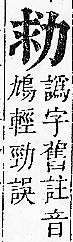 譌字舊註音
鳩輕勁誤